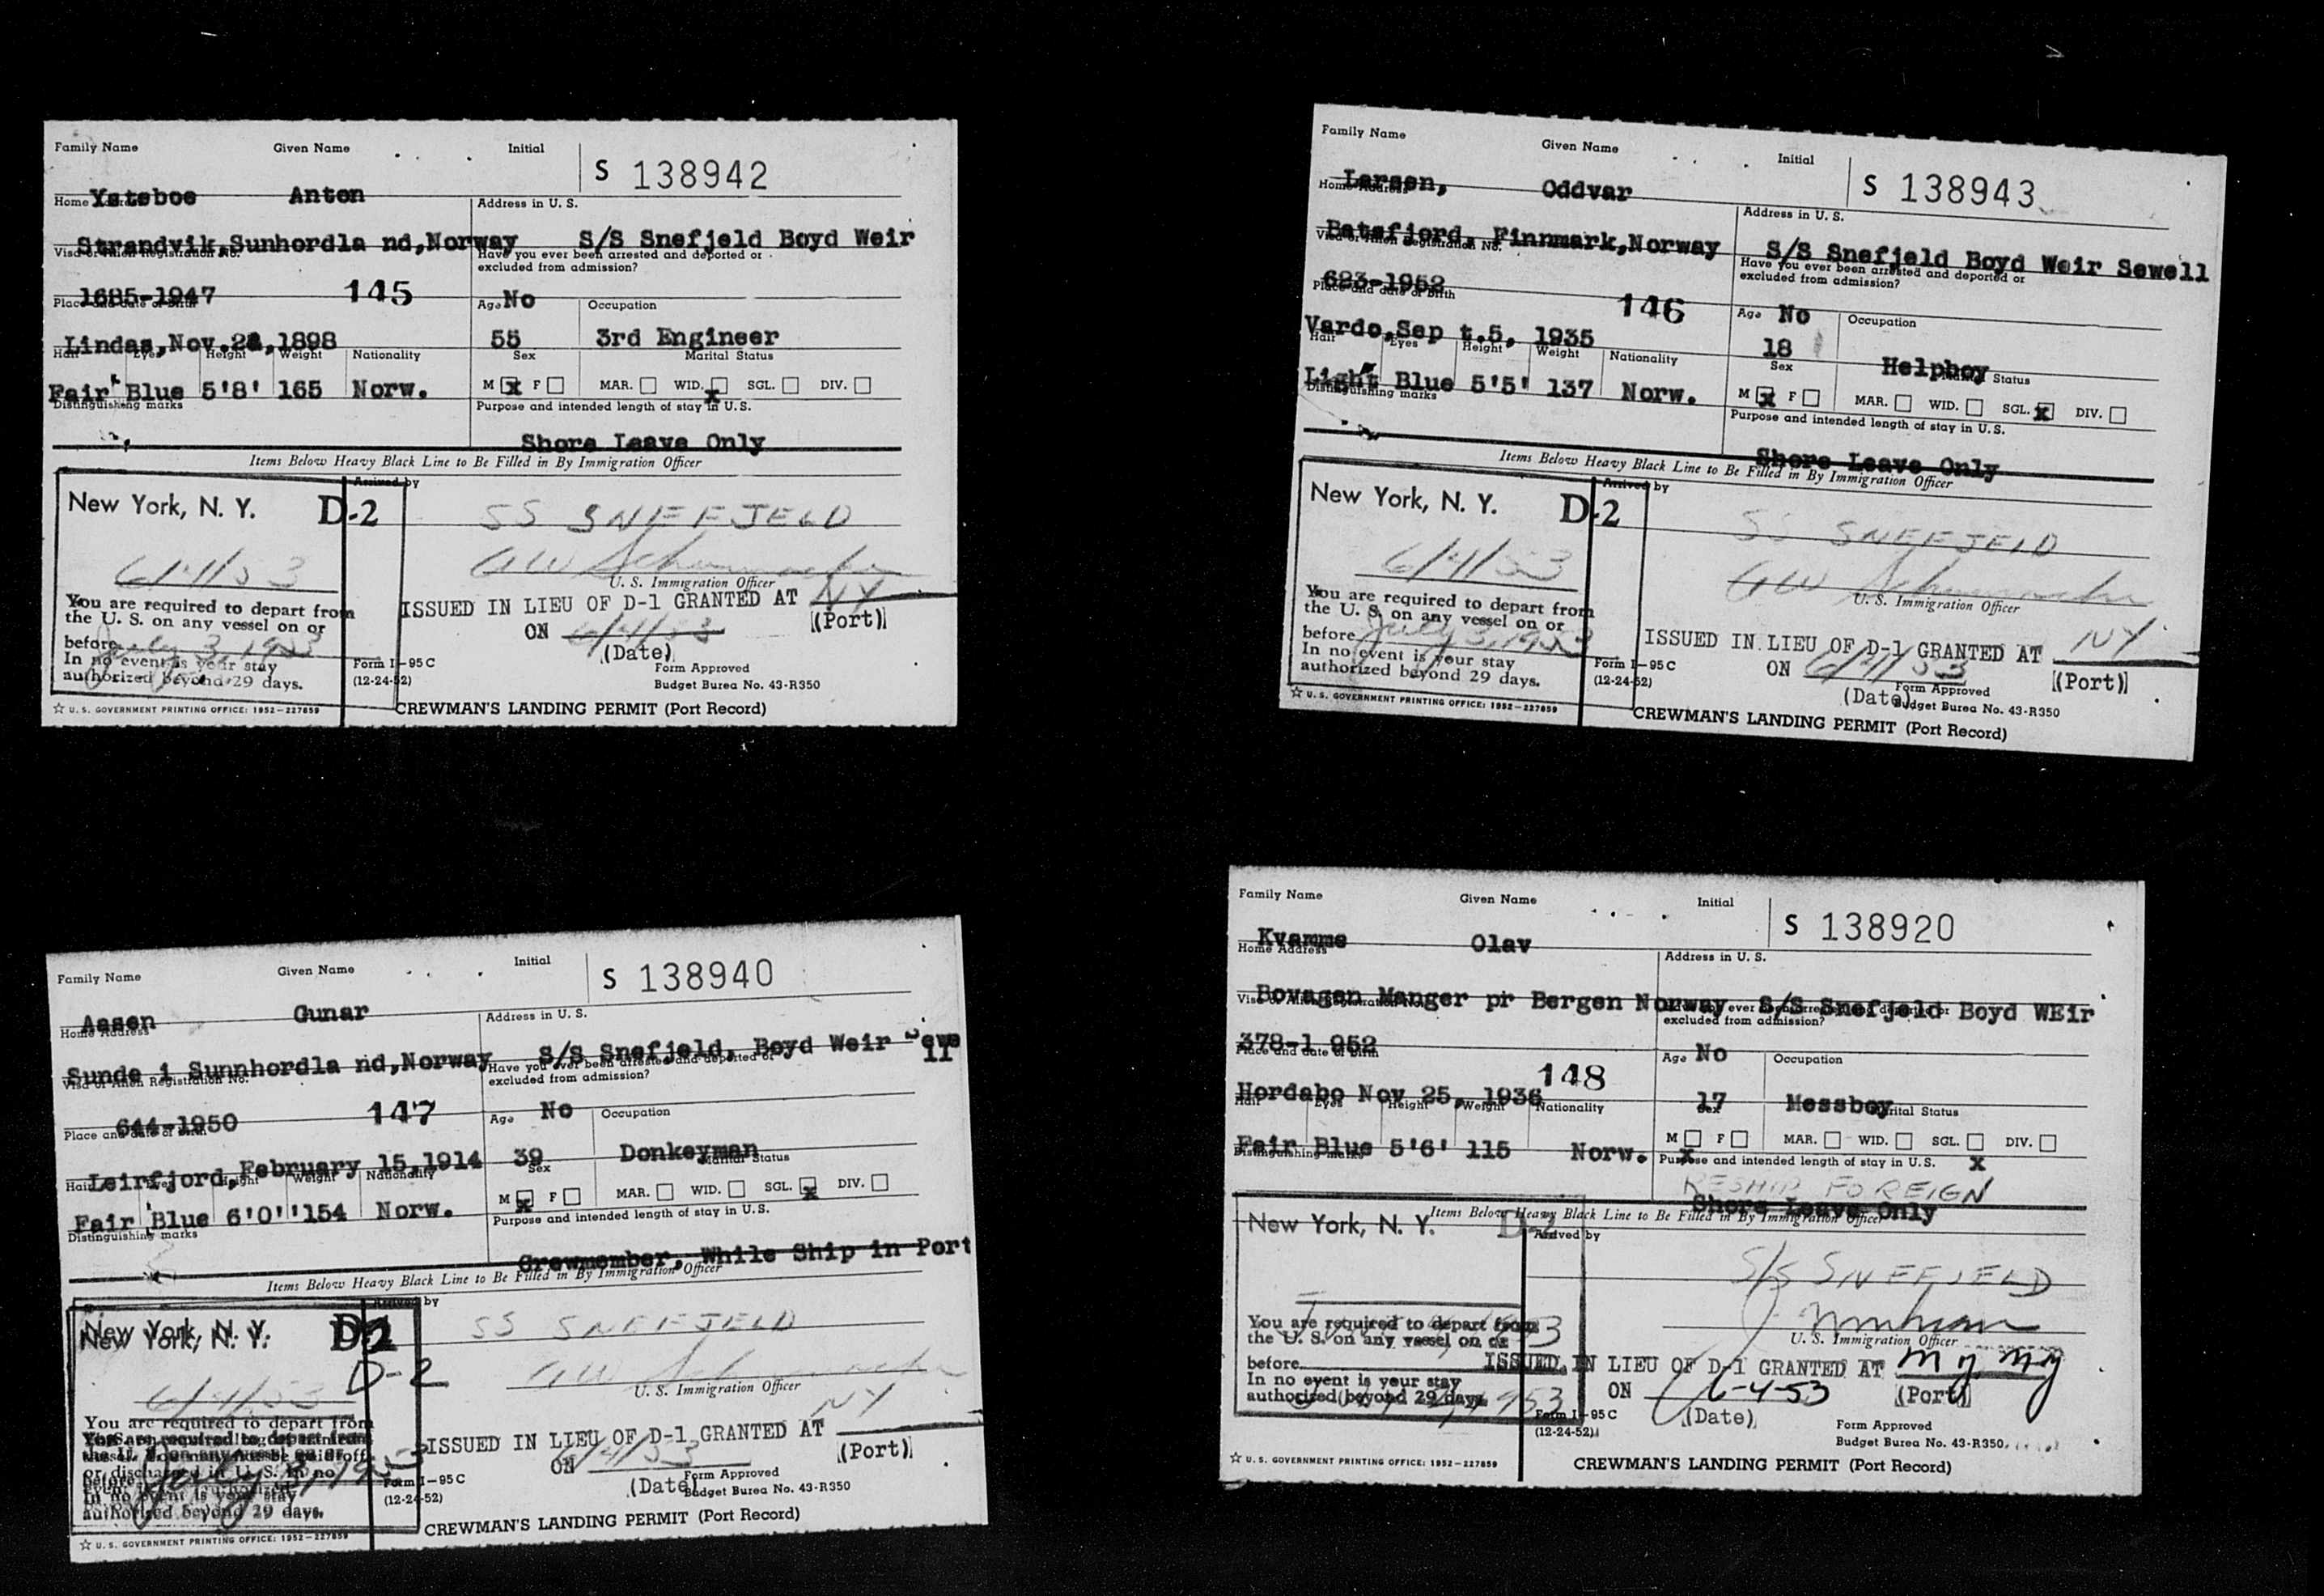 Family Name Given Name Initial S 138942
Ysteboe Anton
Home Address in U. S.
Strandvik,Sunhordla nd,Norway S/S Snefjeld Boyd Weir
Visa or Alien Registration No. Have you ever been arrested and deported or
excluded from admission?
1685-1947 145 No
Place and date of birth Age Occupation
Lindas,Nov. ,1898 55 3rd Engineer
Hair Eyes Height Weight Nationality Sex Marital Status
Fair Blue 5'8' 165 Norw. M x F MAR. WID. x SGL. DIV.
Distinguishing marks Purpose and intended length of stay in U.S.
Shore Leave Only
Items Below Heavy Black Line to Be Filled in By Immigration Officer
Arrived by
New York, N. Y. D-2 SS SNEFJELD
6/4/53
U. S. Immigration Officer
You are required to depart from
the U. S. on any vessel on or
before July 3, 1953
In no event is your stay
authorized beyond 29 days.
ISSUED IN LIEU OF D-1 GRANTED AT NY
(Port)
ON 6/4/53
(Date)
Form I-95 C
(12-24-52)
Form Approved
Budget Burea No. 43-R350
☆ U. S. GOVERNMENT PRINTING OFFICE: 1952-227859
CREWMAN'S LANDING PERMIT (Port Record)
Family Name Given Name Initial S 138943
Larsen, Oddvar
Home Address Address in U. S.
Batsfjord, Finnmark,Norway S/S Snefjeld Boyd Weir Sewell
Visa or Alien Registration No. Have you ever been arrested and deported or
excluded from admission?
623-1952 146 No
Place and date of birth Age Occupation
Vardo,Sep t.5, 1935 18 Helpboy
Hair Eyes Height Weight Nationality Sex Marital Status
Light Blue 5'5' 137 Norw. M x F MAR. WID. SGL. x DIV.
Distinguishing marks Purpose and intended length of stay in U.S.
Shore Leave Only
Items Below Heavy Black Line to Be Filled in By Immigration Officer
Arrived by
New York, N. Y. D-2 SS SNEFJELD
6/4/53
U. S. Immigration Officer
You are required to depart from
the U. S. on any vessel on or
before July 3, 1953
In no event is your stay
authorized beyond 29 days.
ISSUED IN LIEU OF D-1 GRANTED AT NY
(Port)
ON 6/4/53
(Date)
Form I-95 C
(12-24-52)
Form Approved
Budget Burea No. 43-R350
☆ U. S. GOVERNMENT PRINTING OFFICE: 1952-227859
CREWMAN'S LANDING PERMIT (Port Record)
Family Name Given Name Initial S 138940
Aasen Gunar
Home Address Address in U. S.
Sunde i Sunnhordla nd,Norway S/S Snefjeld, Boyd Weir Sewe
ll
Visa or Alien Registration No. Have you ever been arrested and deported or
excluded from admission?
644-1950 147 No
Place and date of birth Age Occupation
Leirfjord,February 15,1914 39 Donkeyman
Hair Eyes Height Weight Nationality Sex Marital Status
Fair Blue 6'0'' 154 Norw. M x F MAR. WID. SGL. x DIV.
Distinguishing marks Purpose and intended length of stay in U.S.
Crewmember, While Ship in Port
Items Below Heavy Black Line to Be Filled in By Immigration Officer
Arrived by
New York, N. Y. D-2 SS SNEFJELD
D-2
6/4/53
U. S. Immigration Officer
You are required to depart from
authorized beyond 29 days.
ISSUED IN LIEU OF D-1 GRANTED AT NY
(Port)
ON 6/4/53
(Date)
Form I-95 C
(12-24-52)
Form Approved
Budget Burea No. 43-R350
☆ U. S. GOVERNMENT PRINTING OFFICE: 1952-227859
CREWMAN'S LANDING PERMIT (Port Record)
Family Name Given Name Initial S 138920
Kvamme Olav
Home Address Address in U. S.
Bovagen Manger pr Bergen Norway S/S Snefjeld Boyd WEir
Visa or Alien Registration No. Have you ever been arrested and deported or
excluded from admission?
378-1 952 No
Place and date of birth 148 Age Occupation
Hordabo Nov 25, 1936 17 Messboy
Hair Eyes Height Weight Nationality Sex Marital Status
Fair Blue 5'6' 115 Norw. M x F MAR. WID. SGL. x DIV.
Distinguishing marks Purpose and intended length of stay in U.S.
RESHIP FOREIGN
Shore Leave Only
Items Below Heavy Black Line to Be Filled in By Immigration Officer
Arrived by
New York, N. Y. D-2 S/S SNEFJELD
U. S. Immigration Officer
You are required to depart from
the U. S. on any vessel on or
before
In no event is your stay
authorized beyond 29 days
ISSUED IN LIEU OF D-1 GRANTED AT ny ny
(Port)
ON 6-4-53
(Date)
Form I-95 C
(12-24-52)
Form Approved
Budget Burea No. 43-R350
☆ U. S. GOVERNMENT PRINTING OFFICE: 1952-227859
CREWMAN'S LANDING PERMIT (Port Record)